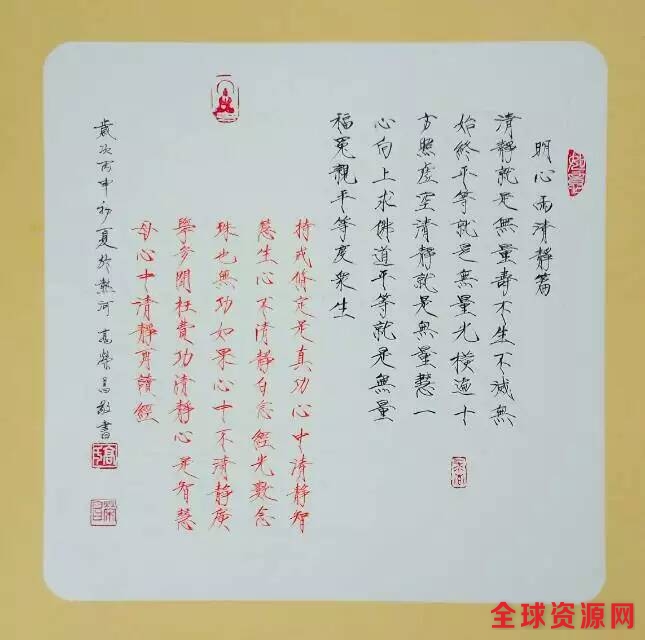 明心雨清靜篇
清靜就是無量壽不生不滅無
始終平等就是無量光橫遍十
方照虛空清靜就是無量慧一
心向上求佛道平等就是無量
福冤親平等度衆生
持戒脩定是真功心中清靜智
慧生心不清靜白念經光數念
珠也無功如果心中不清靜廣
學多聞枉費功清靜心是智慧
母心中清靜再讀經
歲次丙申初夏於熱河 高榮昌敬書
全球资源网